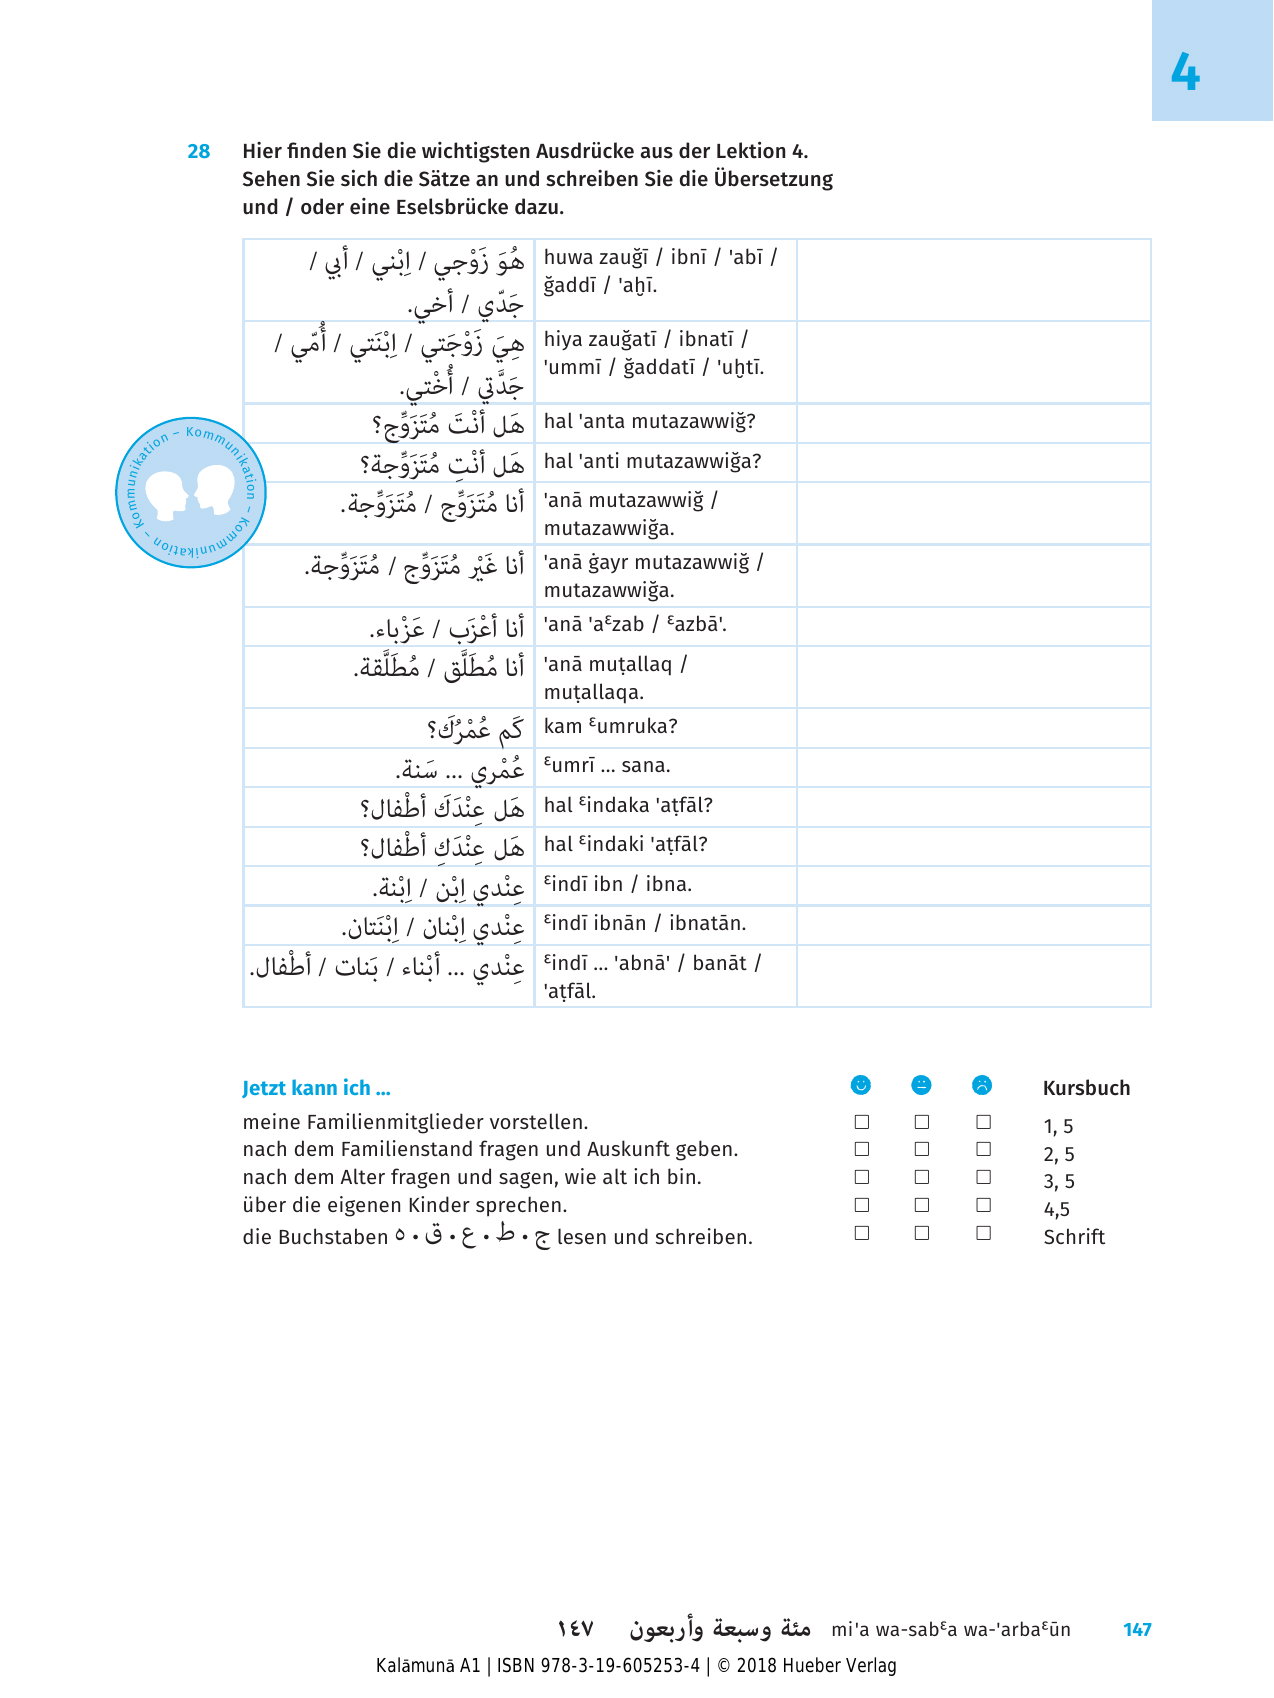 4
28 Hier finden Sie die wichtigsten Ausdrücke aus der Lektion 4.
Sehen Sie sich die Sätze an und schreiben Sie die Übersetzung
und / oder eine Eselsbrücke dazu.
هُوَ زَوْجي / اِبْني / أبي /
جَدّي / أخي.
huwa zauǧī / ibnī / 'abī /
ǧaddī / 'aḫī.
هِيَ زَوْجَتي / اِبْنَتي / أُمّي /
جَدَّتي / أُخْتي.
hiya zauǧatī / ibnatī /
'ummī / ǧaddatī / 'uḫtī.
هَل أنْتَ مُتَزَوِّج؟
hal 'anta mutazawwiǧ?
هَل أنْتِ مُتَزَوِّجة؟
hal 'anti mutazawwiǧa?
أنا مُتَزَوِّج / مُتَزَوِّجة.
'anā mutazawwiǧ /
mutazawwiǧa.
أنا غَيْر مُتَزَوِّج / مُتَزَوِّجة.
'anā ġayr mutazawwiǧ /
mutazawwiǧa.
أنا أعْزَب / عَزْباء.
'anā 'aᵋzab / ᵋazbā'.
أنا مُطَلَّق / مُطَلَّقة.
'anā muṭallaq /
muṭallaqa.
كَم عُمْرُكَ؟
kam ᵋumruka?
عُمْري ... سَنة.
ᵋumrī ... sana.
هَل عِنْدَكَ أطْفال؟
hal ᵋindaka 'aṭfāl?
هَل عِنْدَكِ أطْفال؟
hal ᵋindaki 'aṭfāl?
عِنْدي اِبْن / اِبْنة.
ᵋindī ibn / ibna.
عِنْدي اِبْنان / اِبْنَتان.
ᵋindī ibnān / ibnatān.
عِنْدي ... أبْناء / بَنات / أطْفال.
ᵋindī ... 'abnā' / banāt /
'aṭfāl.
Kommunikation – Kommunikation – Kommunikation –
Jetzt kann ich ... Kursbuch
meine Familienmitglieder vorstellen. 1, 5
nach dem Familienstand fragen und Auskunft geben. 2, 5
nach dem Alter fragen und sagen, wie alt ich bin. 3, 5
über die eigenen Kinder sprechen. 4,5
die Buchstaben ج • ط • ع • ق • ه lesen und schreiben. Schrift
١٤٧ مئة وسبعة وأربعون mi'a wa-sabᵋa wa-'arbaᵋūn 147
Kalāmunā A1 | ISBN 978-3-19-605253-4 | © 2018 Hueber Verlag